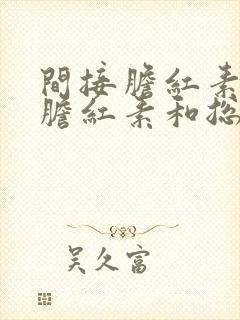 間接膽紅素
膽紅素和捴
吴久富